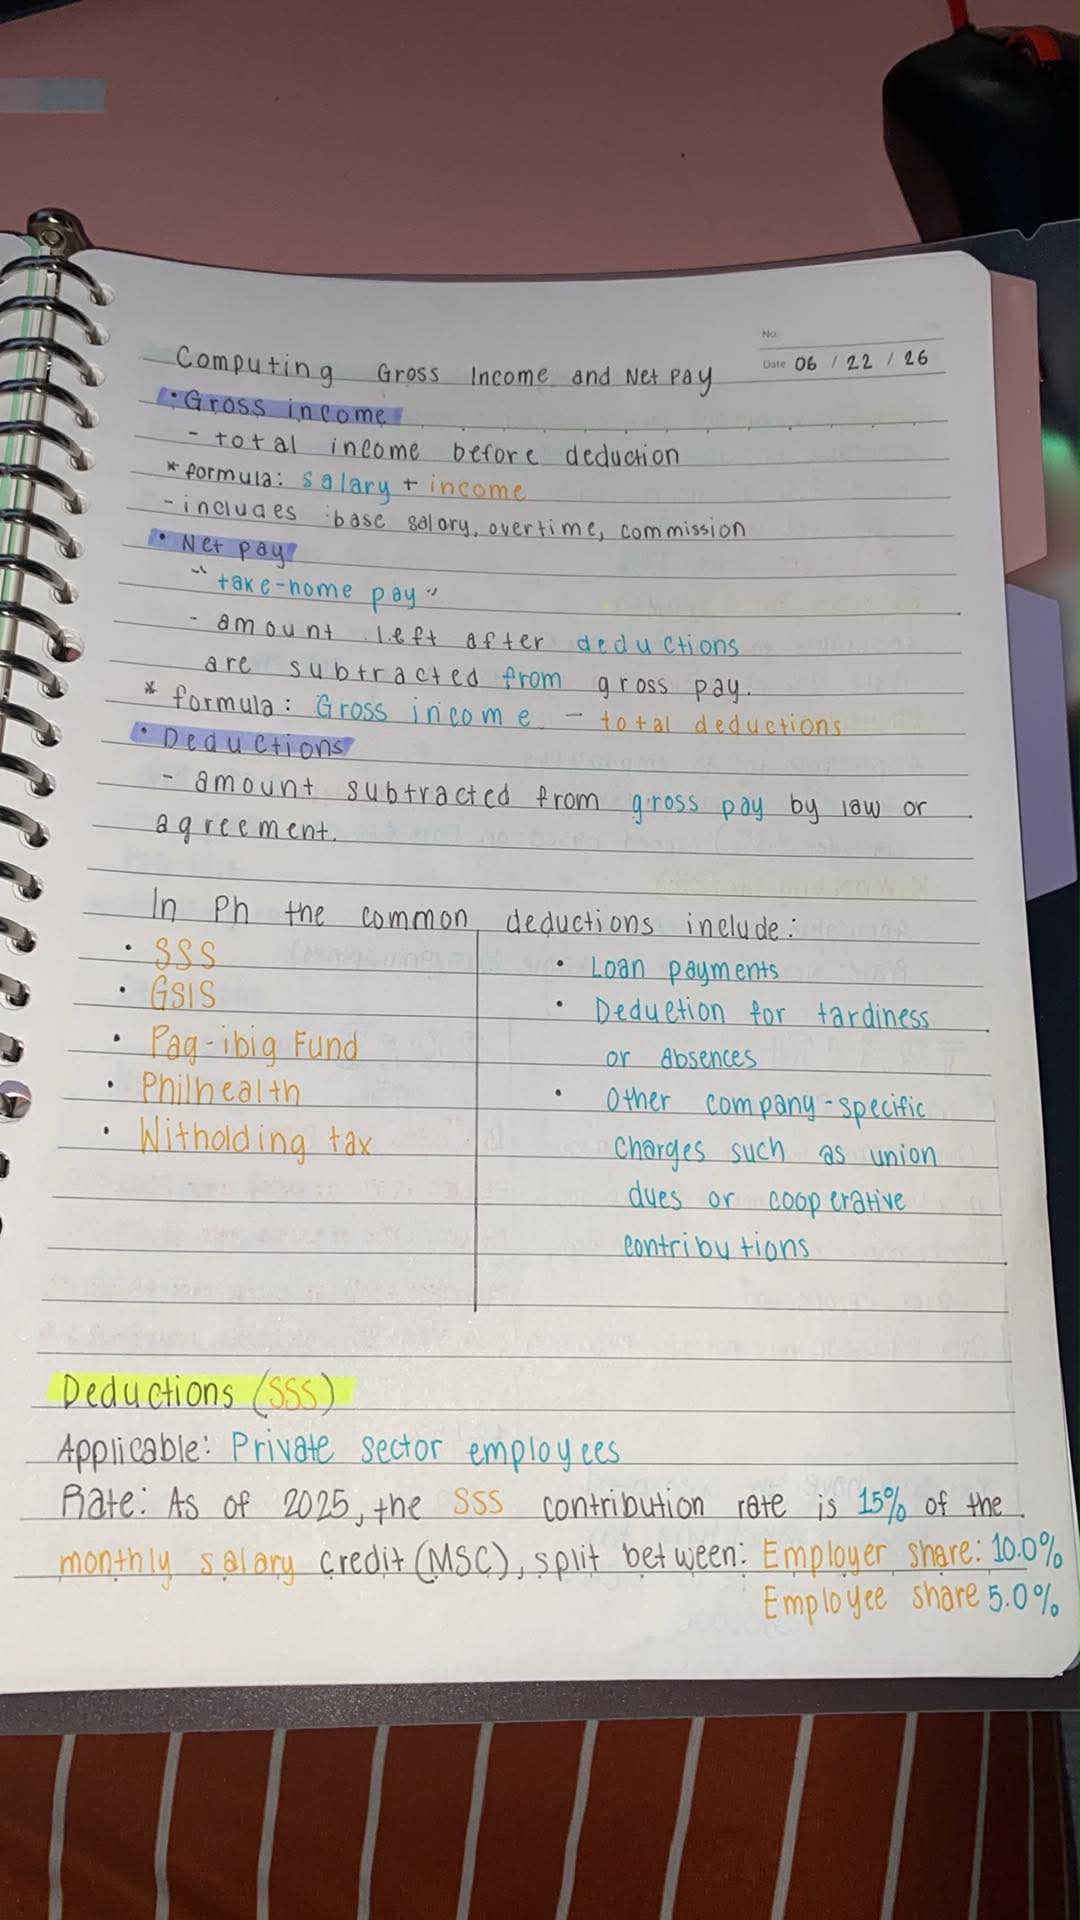 No.
Date 06 / 22 / 26
Computing Gross Income and Net Pay
• Gross income
- total income before deduction
* formula: salary + income
- includes base salary, overtime, commission
• Net pay
- "take-home pay"
- amount left after deductions
are subtracted from gross pay.
* formula: Gross income - total deductions
• Deductions
- amount subtracted from gross pay by law or
agreement.
In Ph the common deductions include:
• SSS
• GSIS
• Pag-ibig Fund
• Philhealth
• Witholding tax
• Loan payments
• Deduction for tardiness
or absences
• Other company-specific
charges such as union
dues or cooperative
contributions
Deductions (SSS)
Applicable: Private sector employees
Rate: As of 2025, the SSS contribution rate is 15% of the
monthly salary credit (MSC), split between: Employer share: 10.0%
Employee share 5.0%